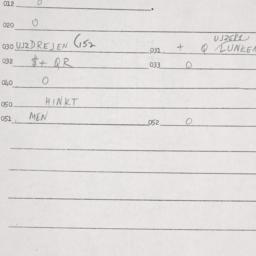 012 0
020 0
030 UJZDREJEN G152 031 + Q
032 $+ QR 033 0
040 0
050 HINKT
051 MEN 052 0